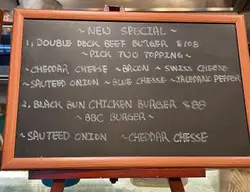 ~ NEW SPECIAL ~
1, DOUBLE DECK BEEF BURGER $108
~ PICK TWO TOPPING ~
~ CHEDDAR CHEESE ~ BACON ~ SWISS CHEESE
~ SAUTEED ONION ~ BLUE CHEESE ~ JALEPANO PEPPER
2, BLACK BUN CHICKEN BURGER $88
~ BBC BURGER ~
~ SAUTEED ONION ~ CHEDDAR CHESSE